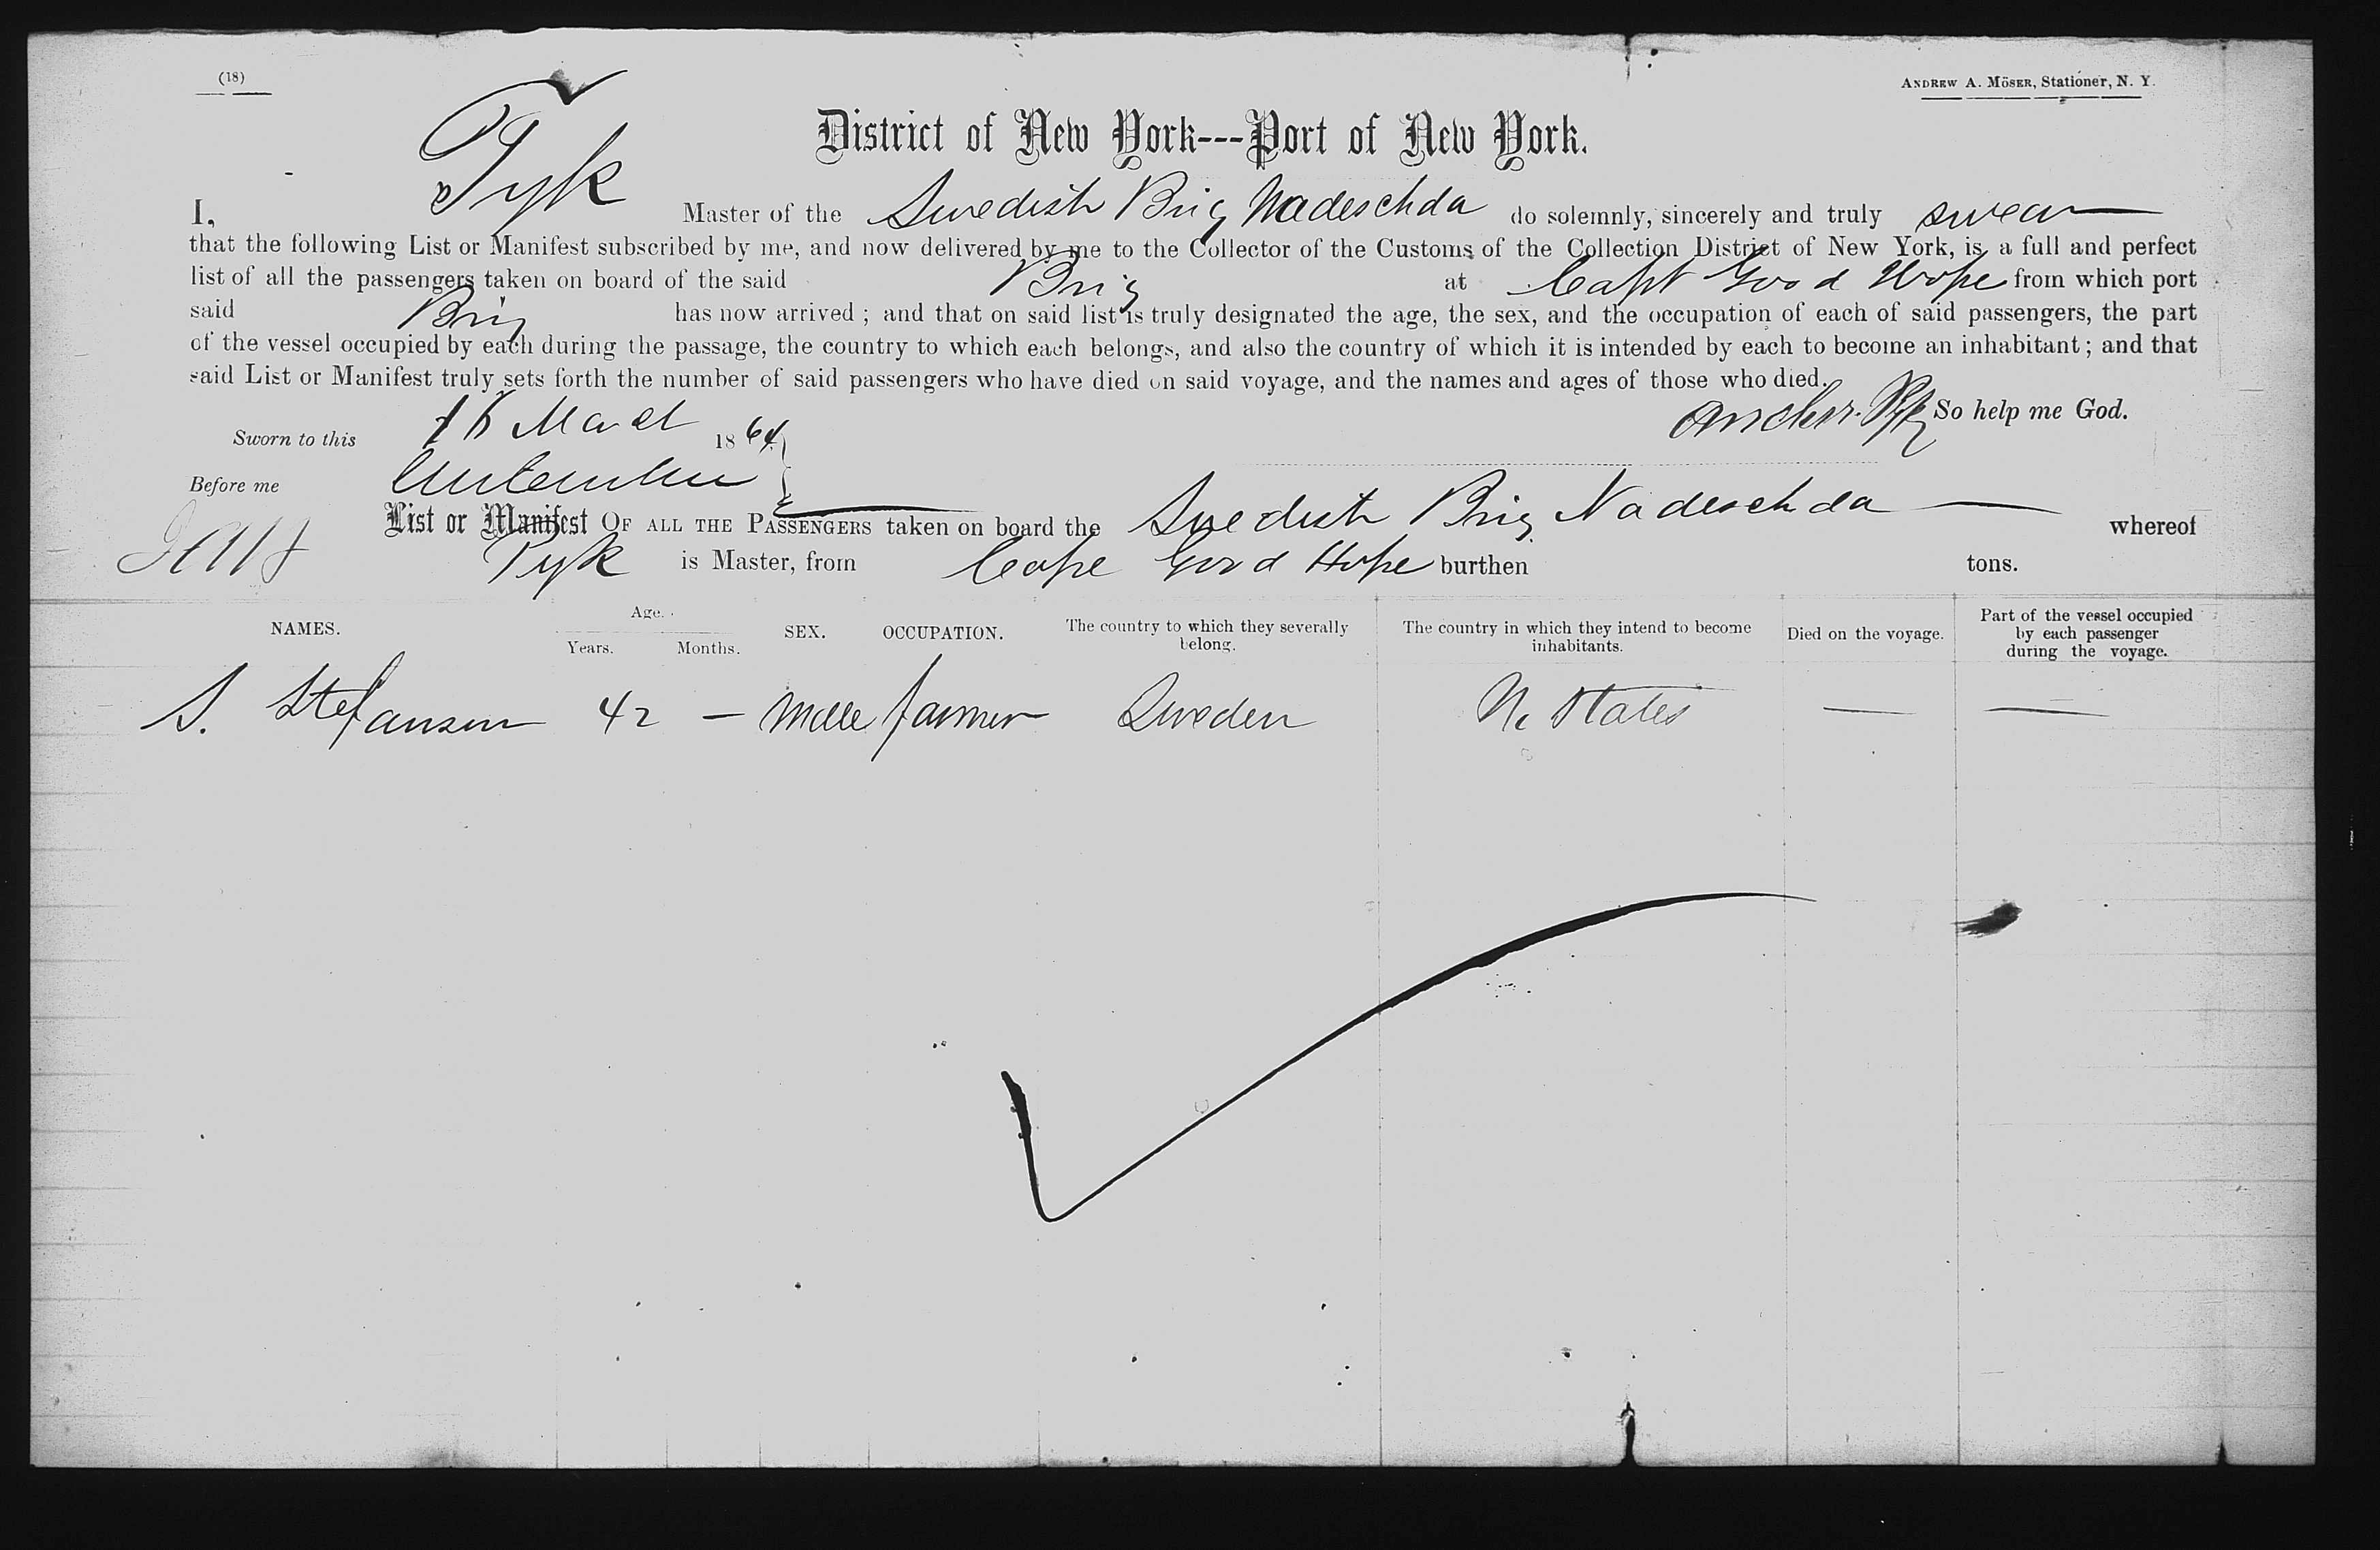 (18)
ANDREW A. MÖSER, Stationer, N. Y.
District of New York---Port of New York.
I, Tyk Master of the Swedish Brig Nadeschda do solemnly, sincerely and truly swear
that the following List or Manifest subscribed by me, and now delivered by me to the Collector of the Customs of the Collection District of New York, is a full and perfect
list of all the passengers taken on board of the said Brig at Good Hope from which port
said Brig has now arrived ; and that on said list is truly designated the age, the sex, and the occupation of each of said passengers, the part
of the vessel occupied by each during the passage, the country to which each belongs, and also the country of which it is intended by each to become an inhabitant ; and that
said List or Manifest truly sets forth the number of said passengers who have died on said voyage, and the names and ages of those who died.
So help me God.
Sworn to this 1864
Before me
List or Manifest OF ALL THE PASSENGERS taken on board the Swedish Brig Nadeschda whereof
Tyk is Master, from Cape Good Hope burthen tons.
NAMES. Age. Years. Months. SEX. OCCUPATION. The country to which they severally belong. The country in which they intend to become inhabitants. Died on the voyage. Part of the vessel occupied by each passenger during the voyage.
S. Stefansen 42 — Male farmer Sweden States — —